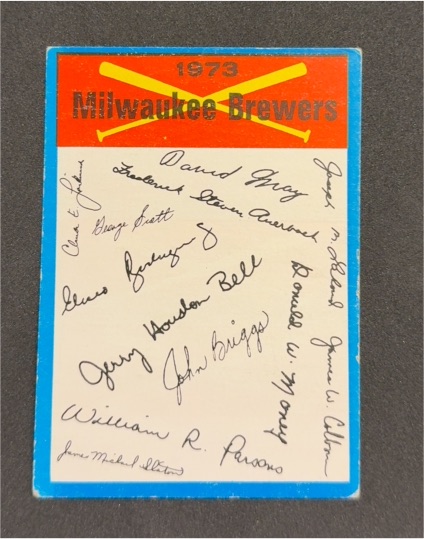 1973
Milwaukee Brewers
David May
Frederick Steven Auerbach
George Scott
Eliseo Rodriguez
Jerry Houston Bell
John Briggs
William R. Parsons
James Michael Slaton
Joseph M. Lahoud
James W. Colborn
Donald W. Money